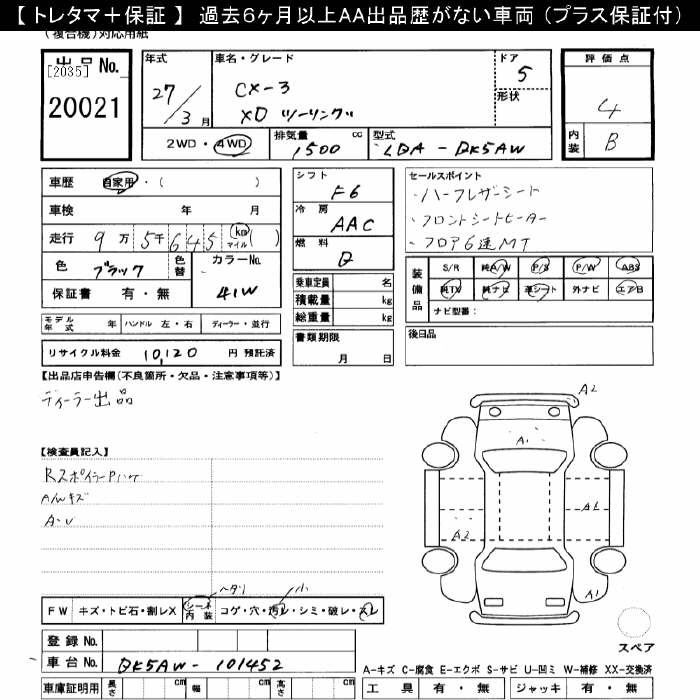 【トレタマ+保証】 過去6ヶ月以上AA出品歴がない車両(プラス保証付)
(複合機)対応用紙
出品 No. [2035] 20021
年式 27/3月
車名・グレード CX-3 XD ツーリング
ドア 5
形状
2WD・4WD
排気量 1500 cc
型式 LDA-DK5AW
評価点 4
内装 B
車歴 自家用・( )
車検 年 月
走行 9万5千645 km マイル ( )
色 ブラック
色替
カラーNo. 41W
保証書 有・無
モデル年式 年 ハンドル 左・右 ディーラー・並行
リサイクル料金 10,120 円 預託済
シフト F6
冷房 AAC
燃料 D
乗車定員 名
積載量 kg
総重量 kg
書類期限
月 日
セールスポイント
・ハーフレザーシート
・フロントシートヒーター
・フロア6速MT
装備品
S/R 純A/W P/S P/W ABS
純TV 純ナビ 革シート 外ナビ エアB
ナビ型番:
後日品
【出品店申告欄(不良箇所・欠品・注意事項等)】
ディーラー出品
【検査員記入】
RスポイラーPハゲ
A/Wキズ
A・U
A2
A1
A1
A2
A1
ヘタリ 小
FW キズ・トビ石・割レX シート内装 コゲ・穴・汚レ・シミ・破レ・スレ
登録 No.
車台 No. DK5AW-101452
スペア
A-キズ C-腐食 E-エクボ S-サビ U-凹ミ W-補修 XX-交換済
車庫証明用 長さ cm 幅 cm 高さ cm
工具 有・無 ジャッキ 有・無